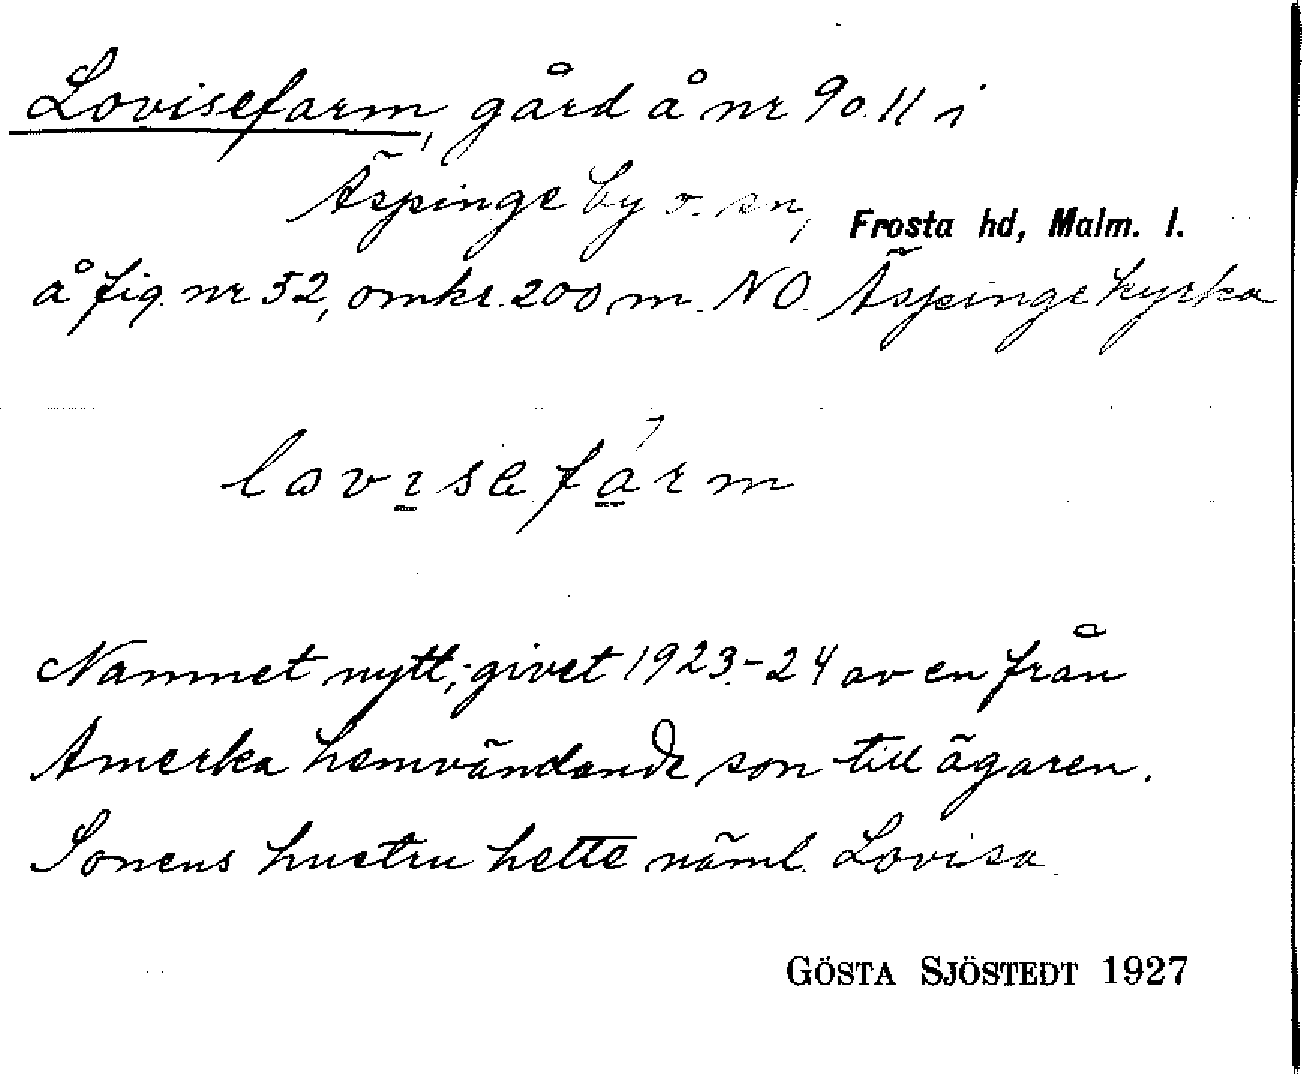 Lovisefarm, gård å nr 9 o. 11 i
Äspinge by o. sn, Frosta hd, Malm. l.
å fig. nr 52, omkr. 200 m. NO. Äspinge kyrka
lovɪsefárm
Namnet nytt; givet 1923-24 av en från
Amerka hemvändande son till ägaren.
Sonens hustru hette näml. Lovisa
GÖSTA SJÖSTEDT 1927